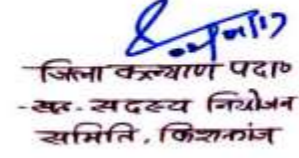 02/01/17
जिला कल्याण पदा०
-सह- सदस्य नियोजन
समिति, किशनगंज